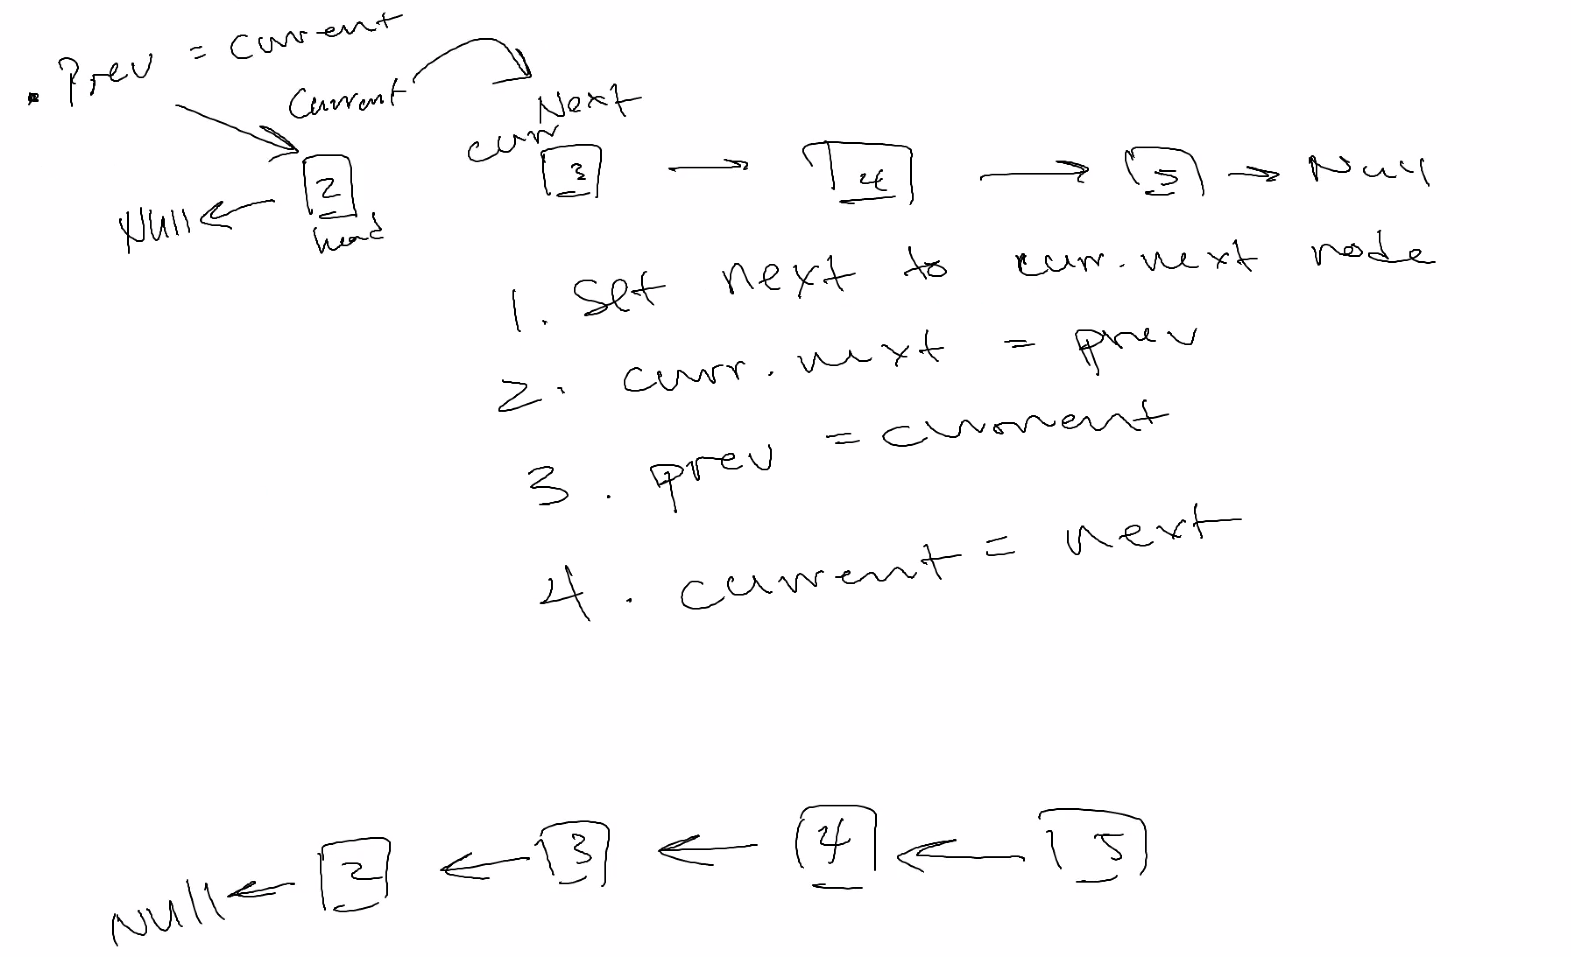 . Prev = current
Current Next
curr
2 3 → 4 → 5 → Null
Null ←
head
1. Set next to curr.next node
2. curr.next = prev
3. prev = current
4. current = next
Null ← 2 ← 3 ← 4 ← 5